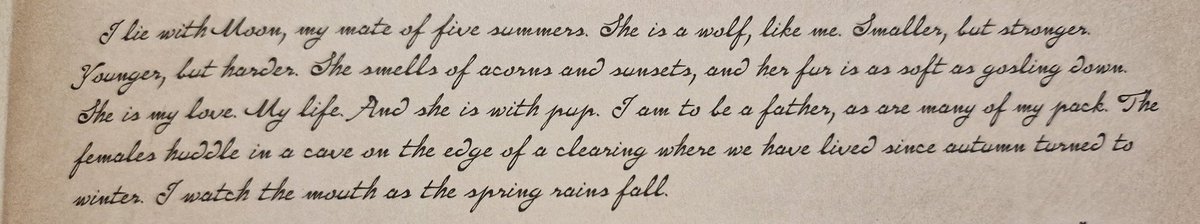 I lie with Moon, my mate of five summers. She is a wolf, like me. Smaller, but stronger.
Younger, but harder. She smells of acorns and sunsets, and her fur is as soft as gosling down.
She is my love. My life. And she is with pup. I am to be a father, as are many of my pack. The
females huddle in a cave on the edge of a clearing where we have lived since autumn turned to
winter. I watch the mouth as the spring rains fall.